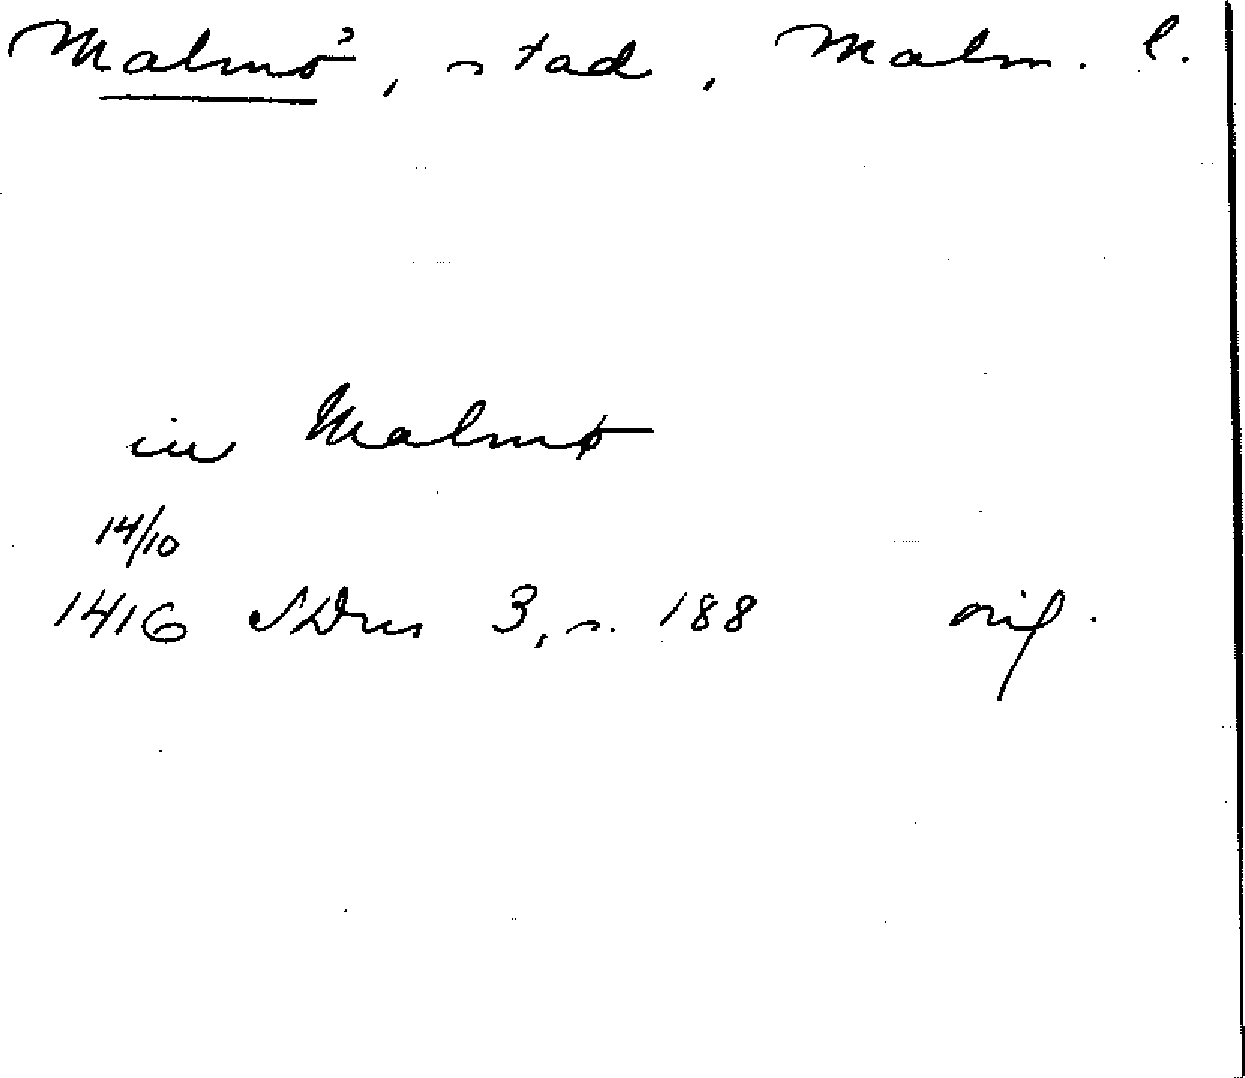 Malmö, stad, Malm. l.
in Malmø
14/10
1416 SDns 3, s. 188 orig.